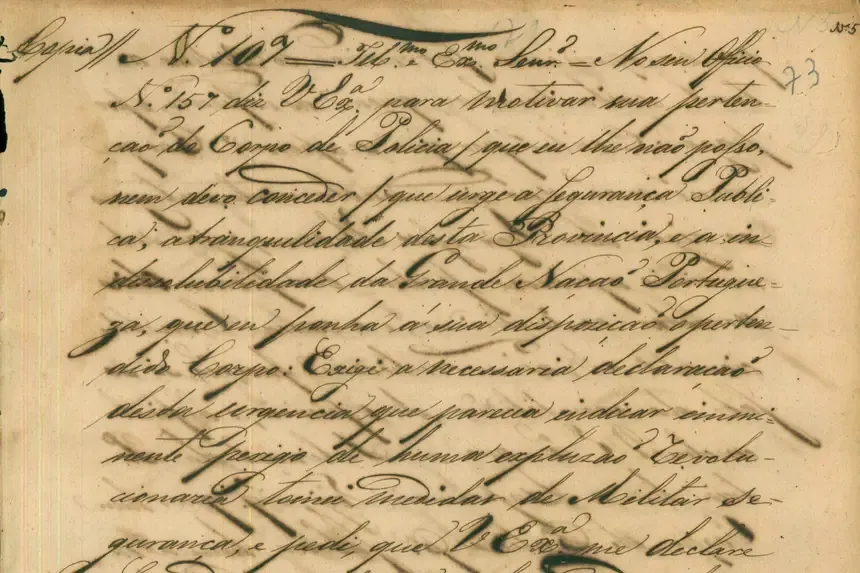 Nº 5
73
Copia // N.º 107 = Ill.mo e Ex.mo Senr.º = No seu Officio
Nº 157 diz V Ex.ª para motivar sua perten-
caõ do Corpo de Policia / que eu lhe naõ posso,
nem devo conceder / que urge a Segurança Publi-
ca, a tranquilidade desta Provincia, e a in-
dissolubilidade da Grande Nacaõ Portugue-
za, que eu ponha á sua dispozicaõ o perten-
dido Corpo: Exige a necessaria declaracaõ
desta urgencia que parecia indicar immi-
nente perigo de huma expluzaõ Revolu-
cionaria tomei medidas de Militar se-
gurança, e pedi, que V Ex.ª me declare